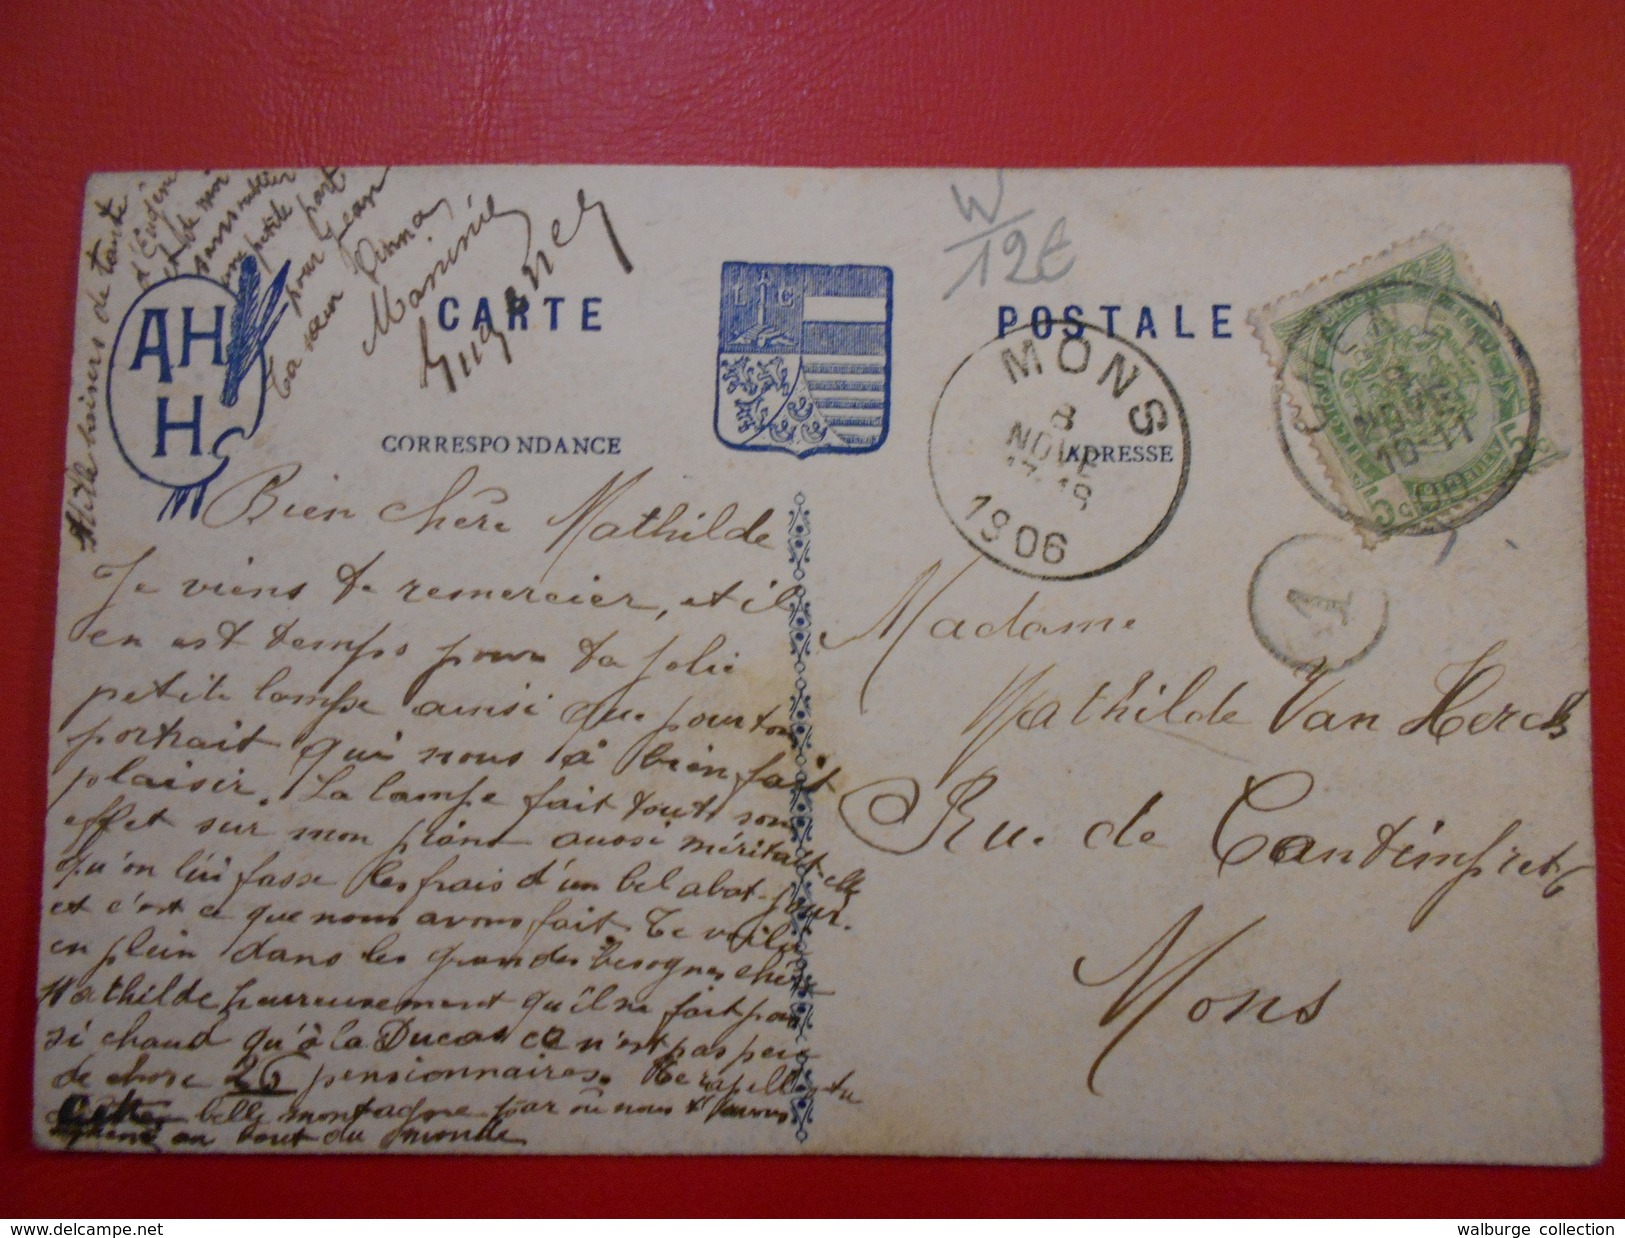 W/12€
AH
H.
CARTE
POSTALE
L C
CORRESPONDANCE
ADRESSE
MONS
8
NOVE
1906
NOVE
10-11
5
1
Bien chère Mathilde
Je viens te remercier, et il
en est temps pour ta jolie
petite lampe ainsi que pour ton
portrait qui nous à bien fait
plaisir. La lampe fait tout son
effet sur mon piano aussi méritait-elle
qu'on lui fasse les frais d'un bel abat-jour.
et c'est ce que nous avons fait. Te voilà
en plein dans les grandes besognes chère
Mathilde heureusement qu'il ne fait pas
si chaud qu'à la Ducasse ce n'est pas peu
de chose 26 pensionnaires. Te rapelles tu
Cette belle montagne par où nous t'avons
au bout du monde
Mille baisers de tante
d'Eugène
et de moi
sans oublier
un petit
pour Jean
ta sœur
Mathilde Van Herck
Madame
Rue de Cantimpret 6
Mons
walburge collection
www.delcampe.net